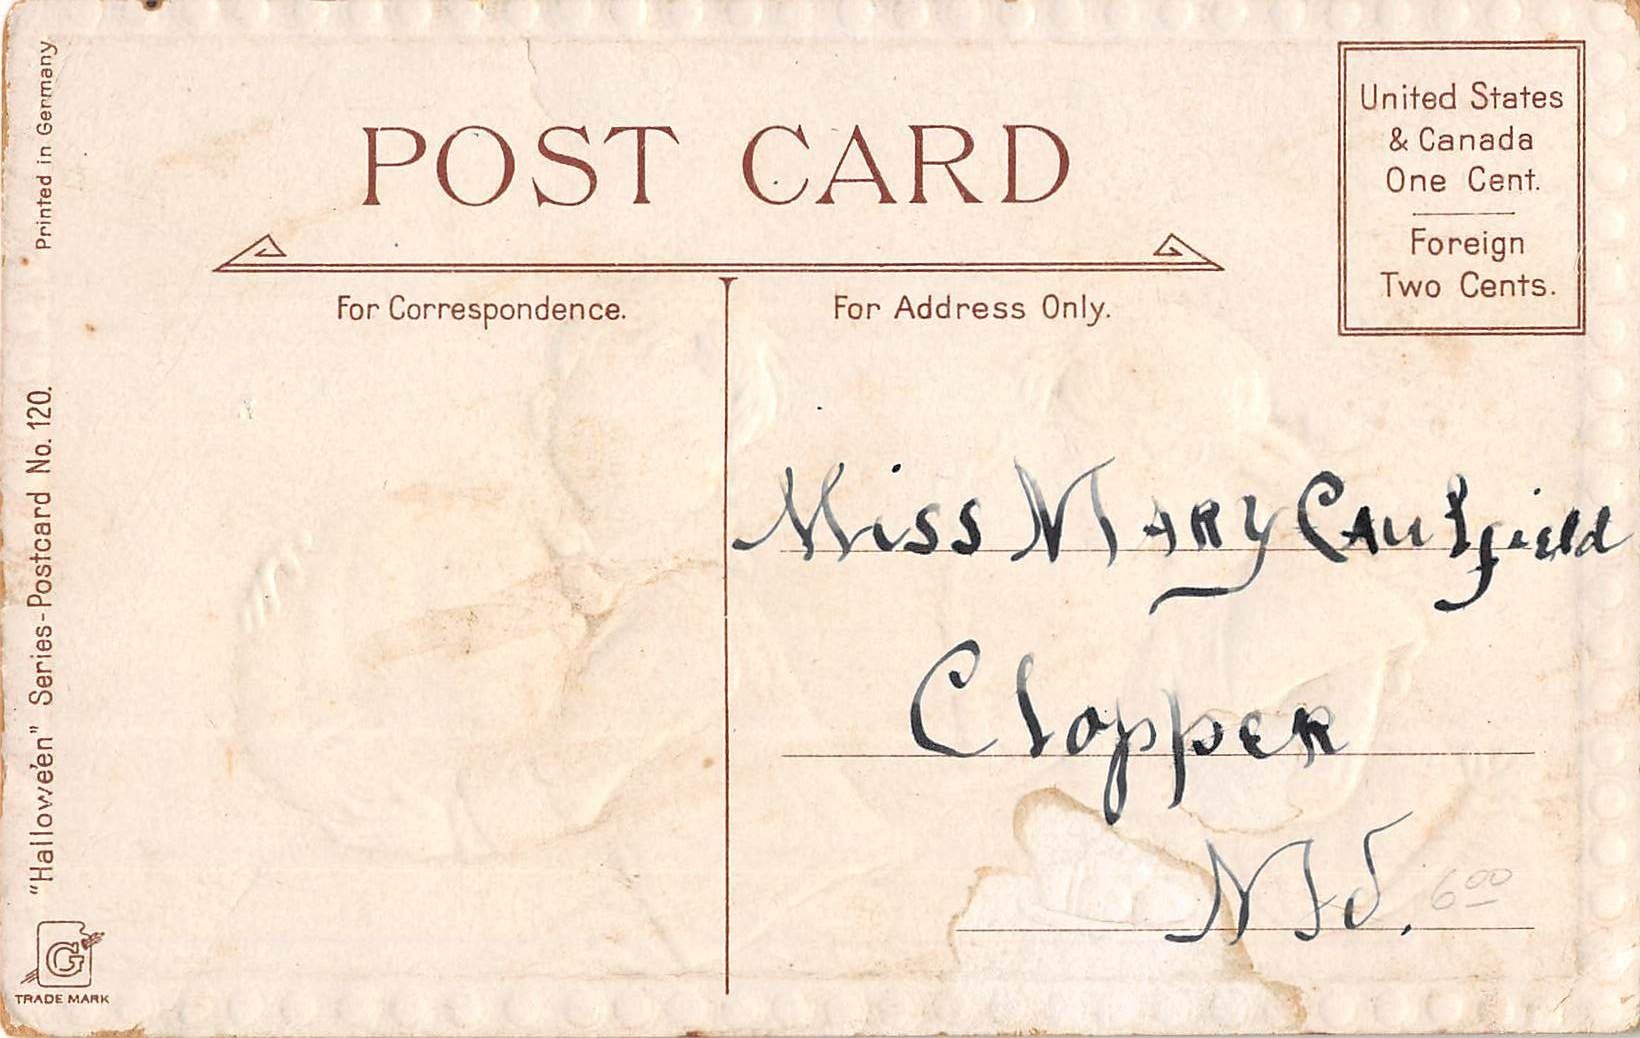 Printed in Germany
POST CARD
United States
& Canada
One Cent.
Foreign
Two Cents.
For Correspondence.
For Address Only.
"Hallowe'en" Series-Postcard No. 120.
Miss Mary Caulfield
Clopper
Md.
6 00
G
TRADE MARK